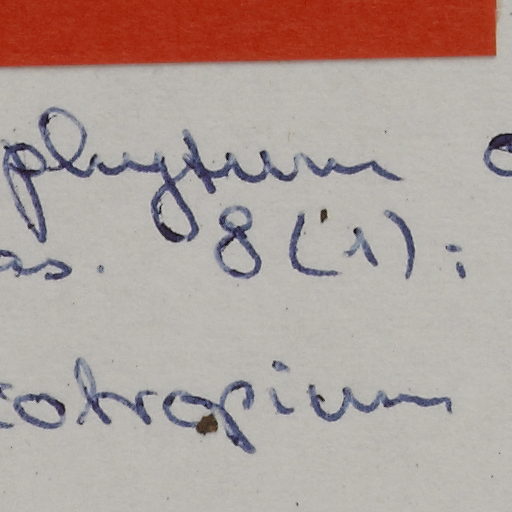 phytum
as. 8(1):
otropium